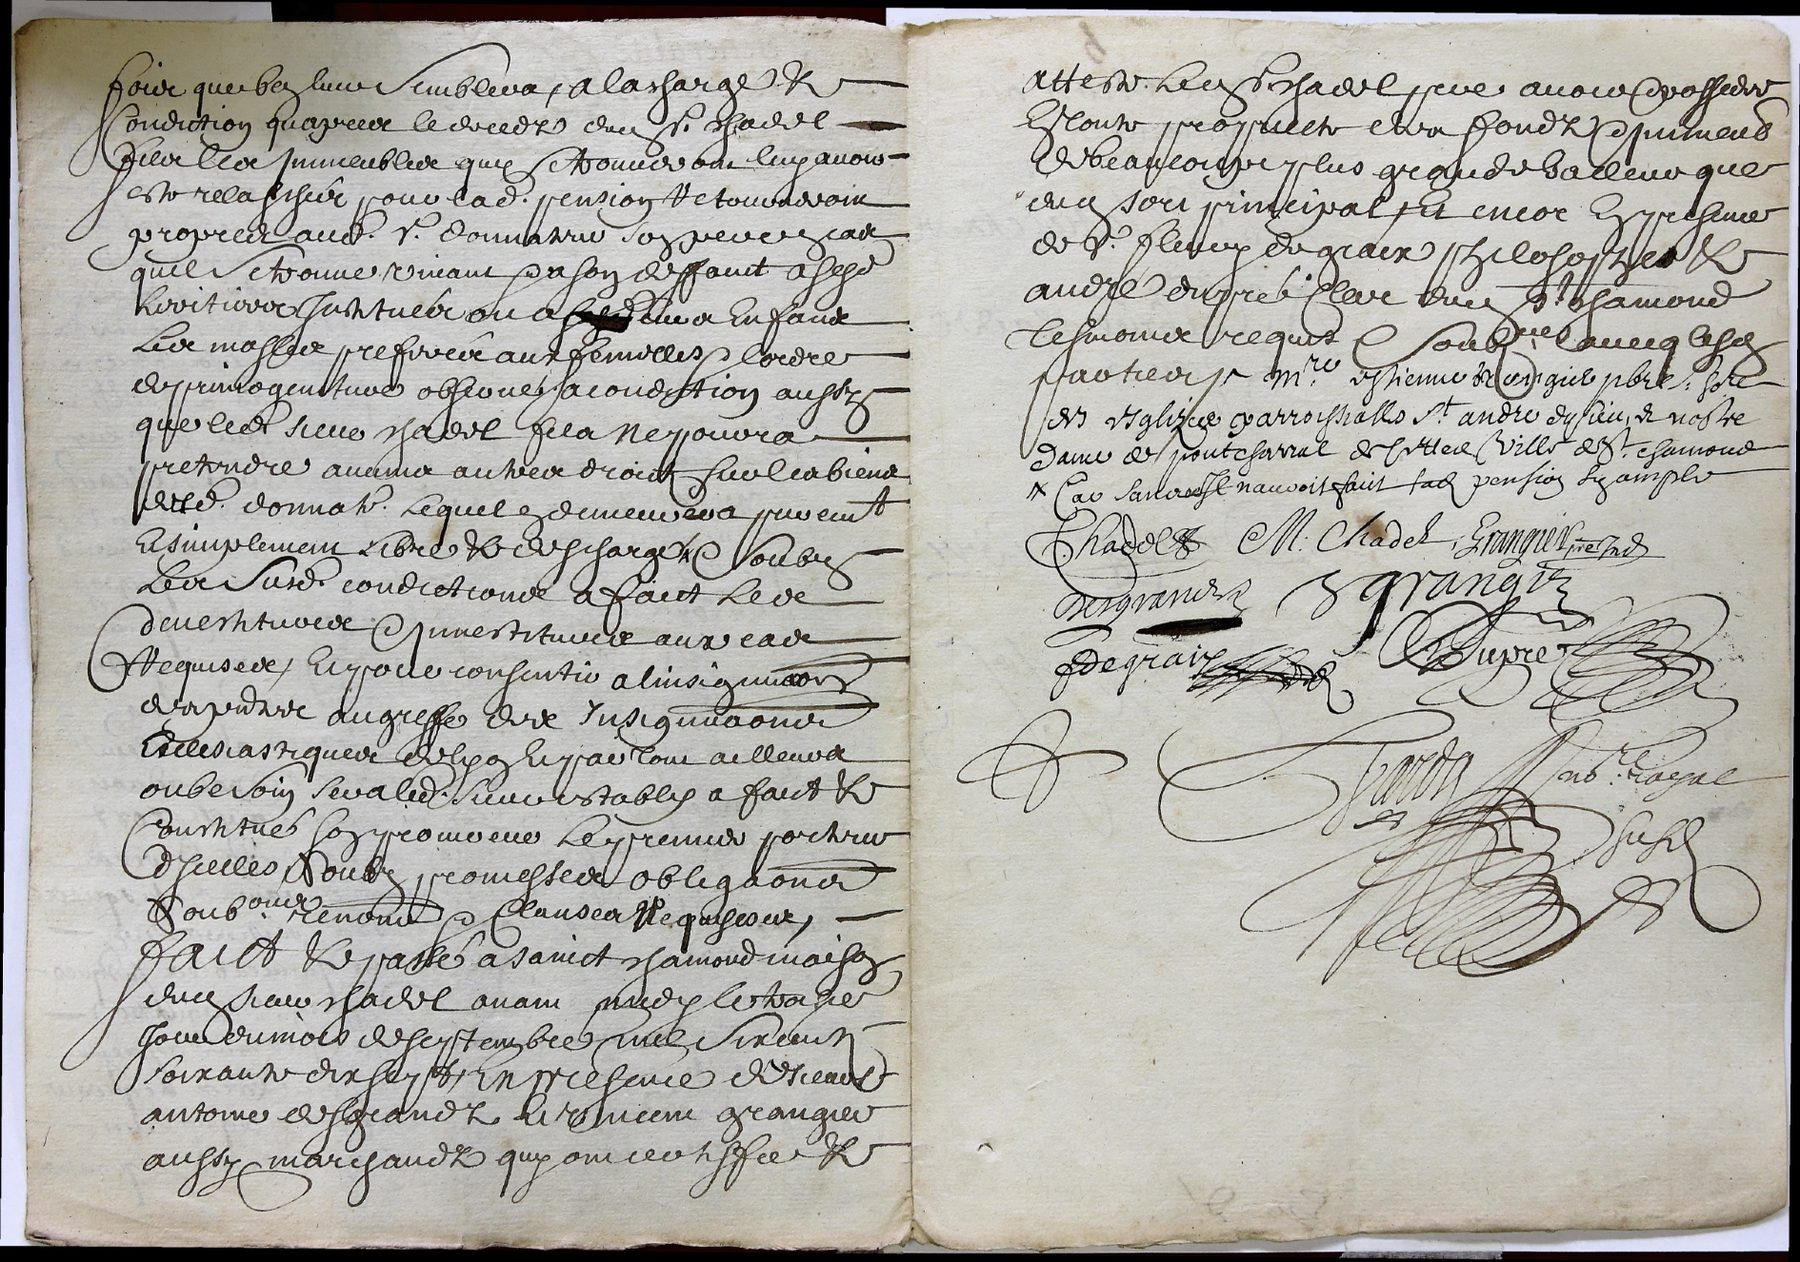 fois que bon luy semblera, a la charge &
Condiction quapres le deceds dud sr. Chadel
filz les immeubles quy se trouveront luy avoir
este relaschés pour lad. pension Retourneront
propres aud. sr. donnateur son pere en cas
quil se trouve vivant & a son deffaut a ses
heritiers Institués ou a enfans
les masles preferés aux femelles & lordre
de primogeniture observé, a condiction aussy
que led. sieur Chadel filz Ne pourra
pretendre aucuns autres droicts sur les biens
dud. donnat. lequel en demeurera purem.t
Et simplement libre & deschargé & soubz
les susd. condictions a faict les
devestitures & Investitures aux cas
Requises, Et pour consentir a linsignuaon
des pntes au greffe des Insignuaons
Ecclesiastiques de Lyon Et par tout ailleurs
ou besoin sera led. sieur estably a faict &
Constitué son procureur le premier porteur
dIcelles, soubz promesses obligaons
Soub.ons renonn & Clauses Requises,
faict & passé a sainct Chamond maison
dud sieur Chadel avant midy le traise
Jour du mois de septembre mil six centz
soixante dix sept, En presence de sieurs
antoine desgrandz Et Vincent grangier
aussy marchandz quy ont certiffié &
attesté led sr Chadel pere avoir & posseder
En toute proprieté des fondz & Immeubs
de beaucoup plus grande valleur que
dud sort principal, Et encor En presence
de sr. fleury degraix philosophe &
andré dupré Clerc dud St. Chamond
tesmoins requis & soub.nez avecq lesd
parties, & m.re estienne grangier pbre s.
des esglizes parrochialles St andre d & nostre
dame de pontcharral de cette Ville de St. chamond
Car sans ce Il nauroit faict lad pension sy ample
Chadel M. Chadel Grangier
desgrandz V grangier
F degraix Dupré
Jarda no.re Royal